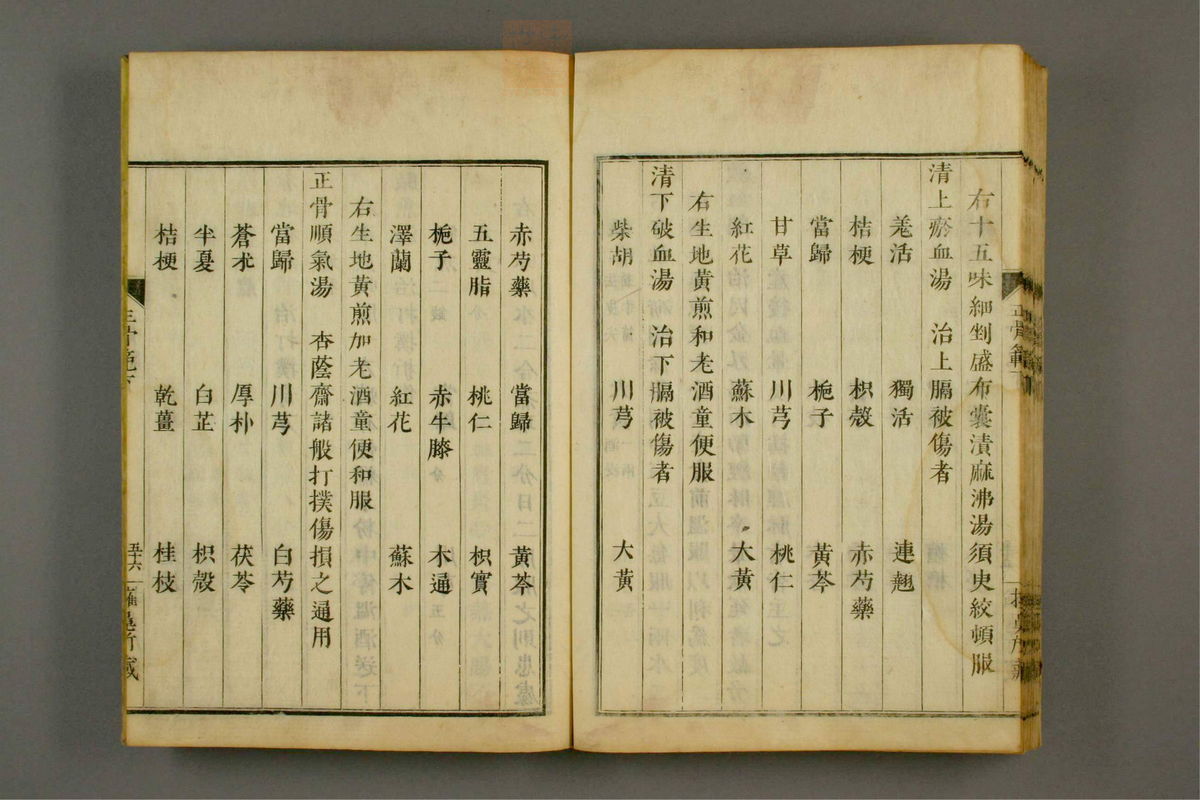 右十五味細剉盛布囊漬麻沸湯須臾絞頓服
清上瘀血湯　治上膈被傷者
羗活　獨活　連翹
桔梗　枳殼　赤芍藥
當歸　梔子　黃芩
甘草　川芎　桃仁
紅花　蘇木　大黃
右生地黃煎和老酒童便服
清下破血湯　治下膈被傷者
柴胡　川芎　大黃
赤芍藥　當歸　黃芩
五靈脂　桃仁　枳實
梔子　赤牛膝　木通
澤蘭　紅花　蘇木
右生地黃煎加老酒童便和服
正骨順氣湯　杏蔭齋諸般打撲傷損之通用
當歸　川芎　白芍藥
蒼朮　厚朴　茯苓
半夏　白芷　枳殼
桔梗　乾薑　桂枝
正骨範下
五十六